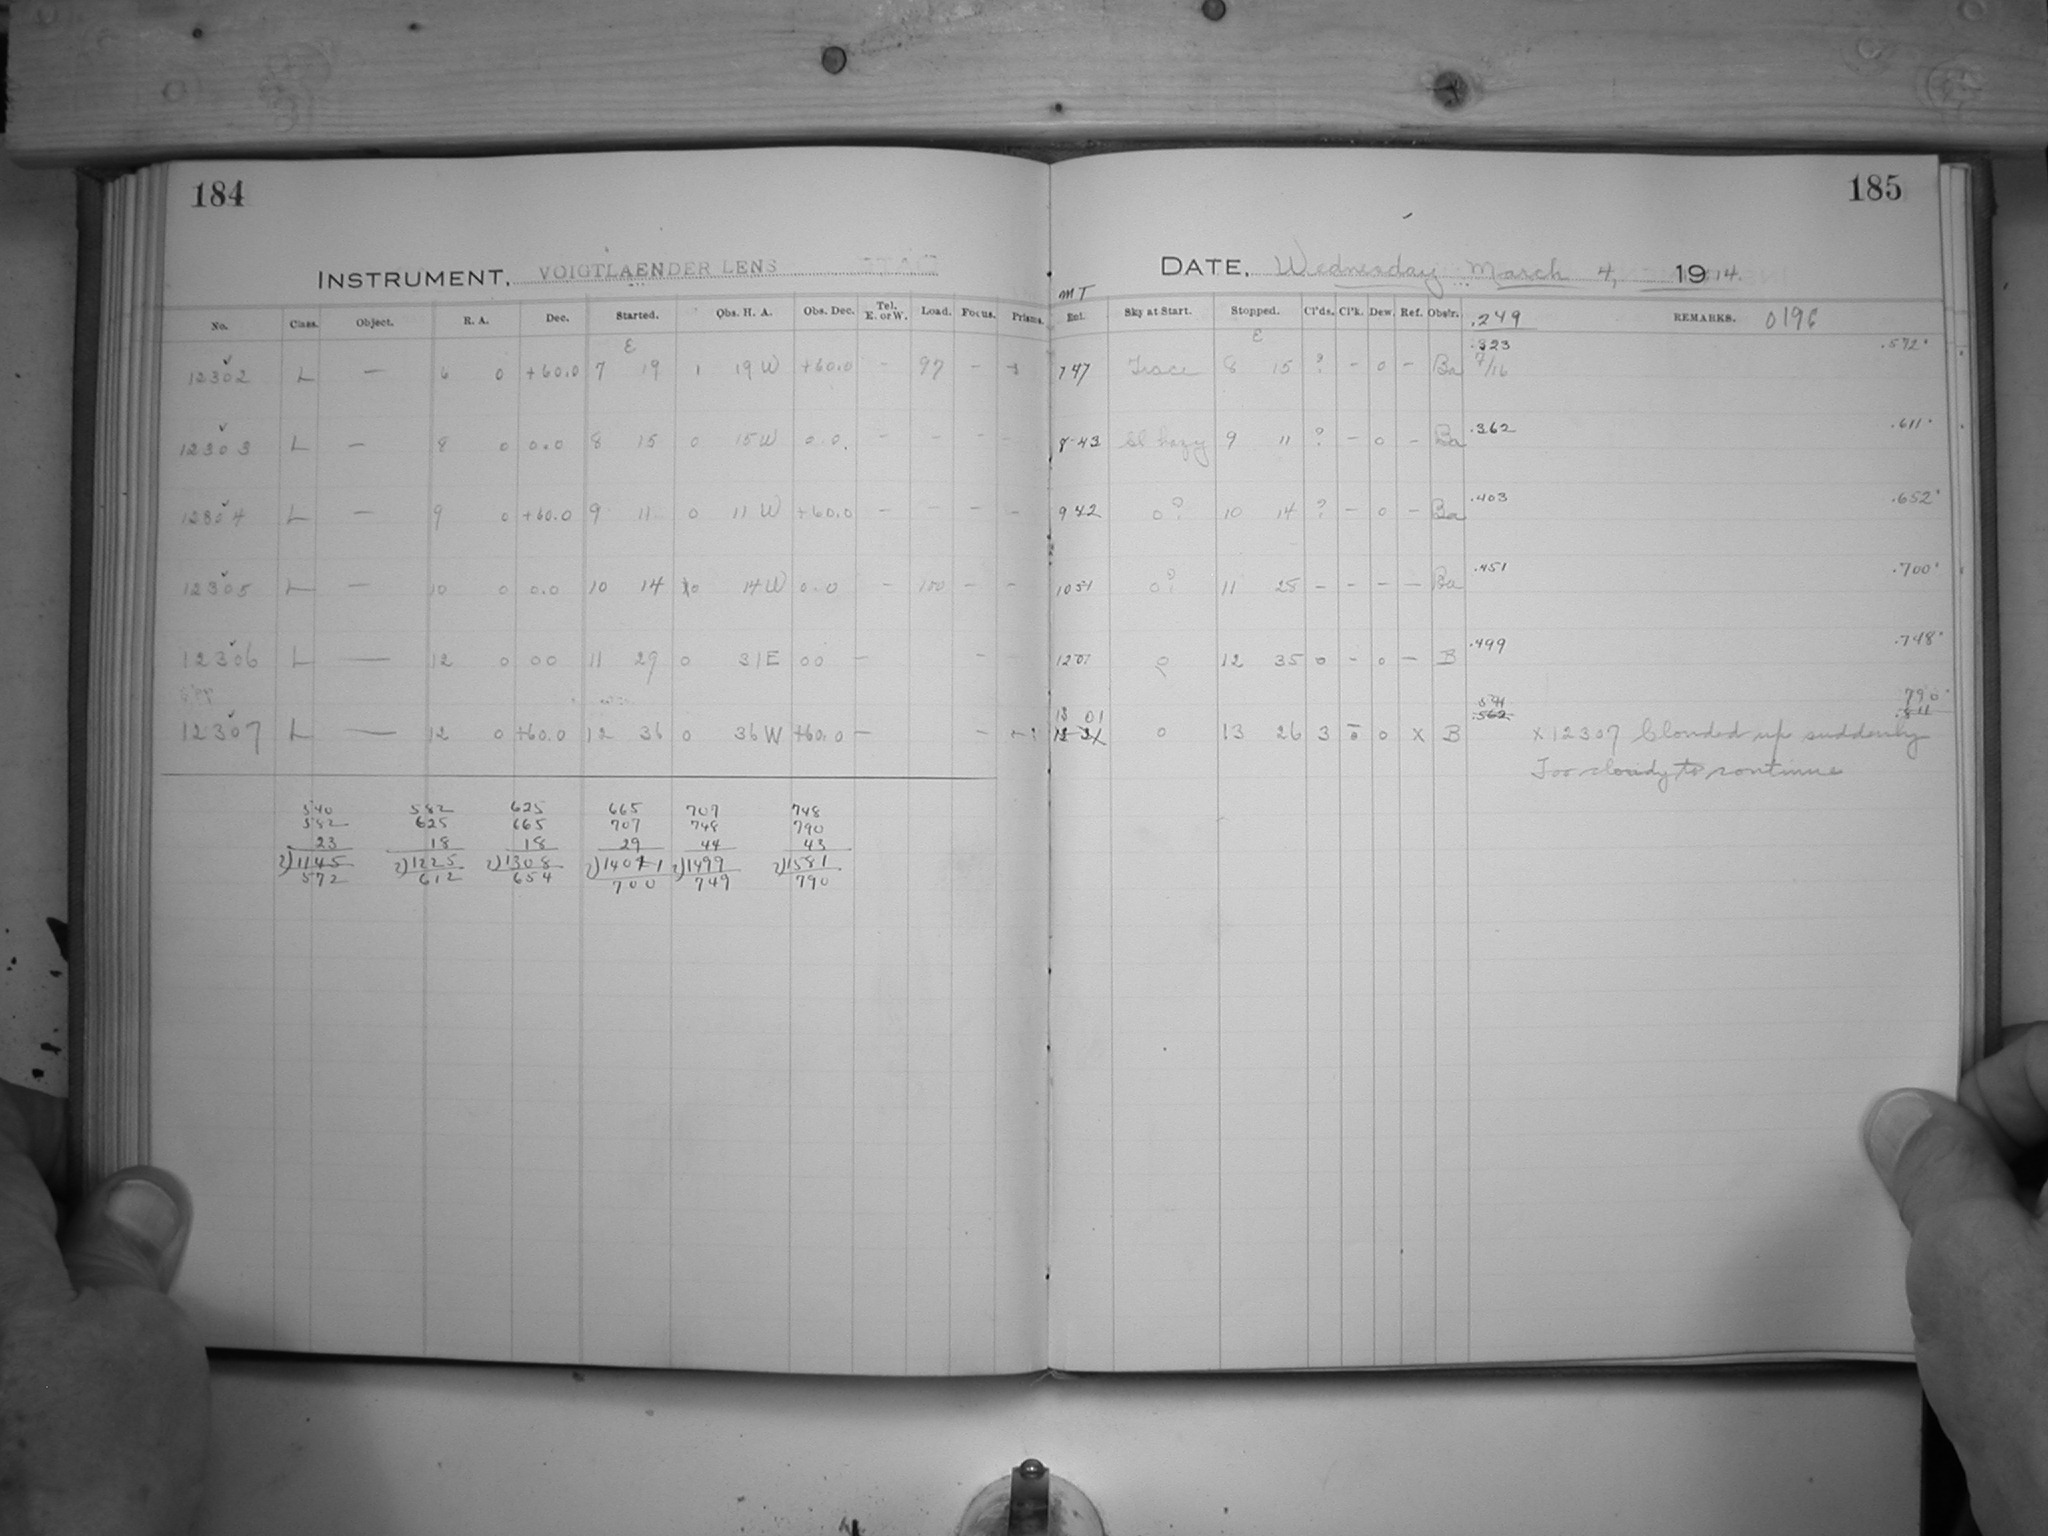 184
185
INSTRUMENT, VOIGTLAENDER LENS
DATE, Wednesday March 4, 1914.
No. Class. Object. R. A. Dec. Started. Obs. H. A. Obs. Dec. Tel. E. or W. Load. Focus. Prisms.
MT
Ent. Sky at Start. Stopped. Cl'ds. Cl'k. Dew. Ref. Obs'r. .249 REMARKS. 0196
E
E
.323 .572
12302 L — 6 0 +60.0 7 19 1 19 W +60.0 - 97 - - 747 Trace 8 15 ? - 0 - Ba 7/16
12303 L — 8 0 0.0 8 15 0 15 W 0.0. - - - - 8 43 Sl hazy 9 11 ? - 0 - Ba .362 .611
12304 L — 9 0 +60.0 9 11 0 11 W +60.0 - - - - 942 0? 10 14 ? - 0 - Ba .403 .652
12305 L — 10 0 0.0 10 14 0 14 W 0.0 - 100 - - 1051 0? 11 25 - - - - Ba .451 .700
12306 L — 12 0 00 11 29 0 31 E 00 — - - 1201 0 12 35 0 - 0 — B .499 .748
13 01 541 790
.562 .811
12307 L — 12 0 +60.0 12 36 0 36 W +60.0 — - - 0 13 26 3 0 0 X B x 12307 Clouded up suddenly
Too cloudy to continue
540 582 625 665 707 748
582 625 665 707 748 790
23 18 18 29 44 43
2)1145 2)1225 2)1308 2)1401 2)1499 2)1581
572 612 654 700 749 790